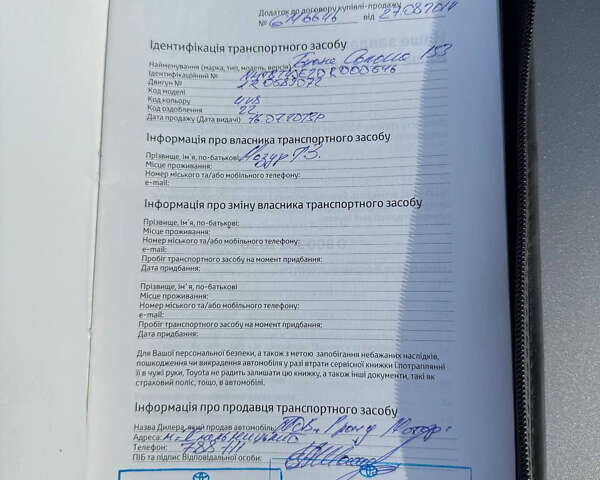 Додаток до договору купівлі-продажу
№ від 27.08.2014
Ідентифікація транспортного засобу
Найменування (марка, тип, модель, версія)
Ідентифікаційний №
Двигун №
Код моделі
Код кольору 4V8
Код оздоблення 22
Дата продажу (Дата видачі)
Інформація про власника транспортного засобу
Прізвище, ім'я, по-батькові Мазур
Місце проживання:
Номер міського та/або мобільного телефону:
e-mail:
Інформація про зміну власника транспортного засобу
Прізвище, ім'я, по-батькові:
Місце проживання:
Номер міського та/або мобільного телефону:
e-mail:
Пробіг транспортного засобу на момент придбання:
Дата придбання:
Прізвище, ім'я, по-батькові
Місце проживання:
Номер міського та/або мобільного телефону:
e-mail:
Пробіг транспортного засобу на момент придбання:
Дата придбання:
Для Вашої персональної безпеки, а також з метою запобігання небажаних наслідків,
пошкодження чи викрадення автомобіля у разі втрати сервісної книжки і потраплянні
її в чужі руки, Toyota не радить залишати цю книжку, а також інші документи, такі як
страховий поліс, тощо, в автомобілі.
Інформація про продавця транспортного засобу
Назва Дилера, який продав автомобіль:
Адреса: м. Хмельницький
Телефон:
ПІБ та підпис Відповідальної особи: